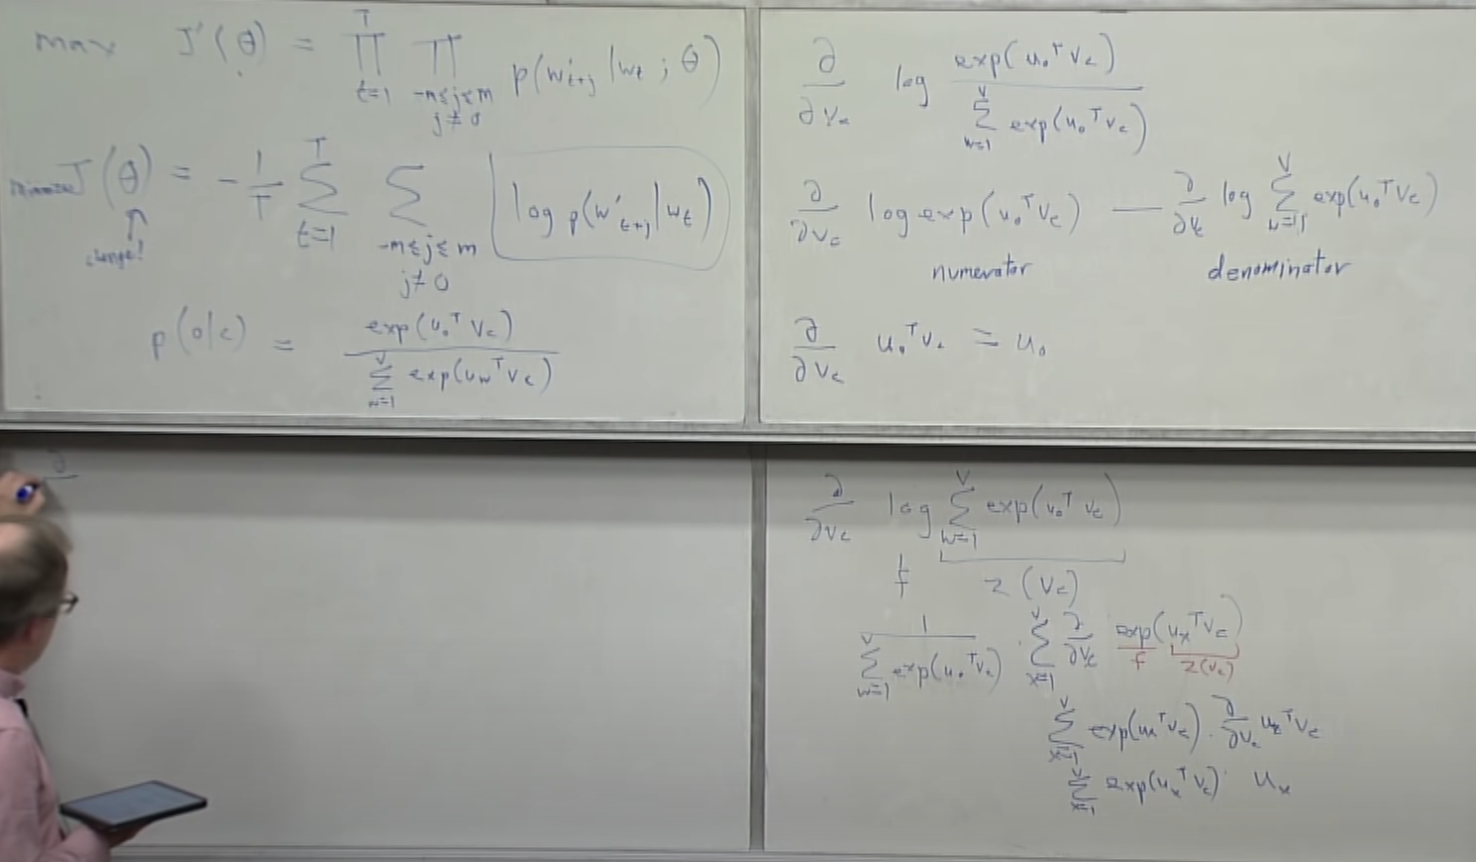 max J'(θ) = ∏_{t=1}^{T} ∏_{-m≤j≤m, j≠0} p(w'_{t+j} | w_t ; θ)
minimize J(θ) = -1/T ∑_{t=1}^{T} ∑_{-m≤j≤m, j≠0} log p(w'_{t+j} | w_t)
change!
p(o|c) = exp(u_o^T v_c) / ∑_{w=1}^{V} exp(u_w^T v_c)
∂/∂v_c log exp(u_o^T v_c) / ∑_{w=1}^{V} exp(u_o^T v_c)
∂/∂v_c log exp(u_o^T v_c) — ∂/∂v_c log ∑_{w=1}^{V} exp(u_o^T v_c)
numerator denominator
∂/∂v_c u_o^T v_c = u_o
∂
∂/∂v_c log ∑_{w=1}^{V} exp(u_o^T v_c)
f z(v_c)
1 / ∑_{w=1}^{V} exp(u_o^T v_c) · ∑_{x=1}^{V} ∂/∂v_c exp(u_x^T v_c)
f z(v_c)
∑_{x=1}^{V} exp(u_x^T v_c) · ∂/∂v_c u_x^T v_c
∑_{x=1}^{V} exp(u_x^T v_c) · u_x